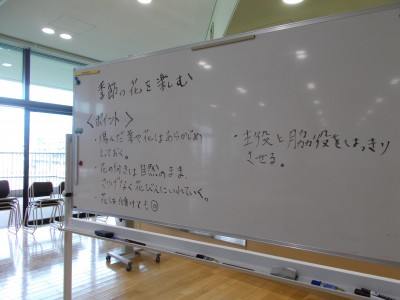 季節の花を楽しむ
<ポイント>
・傷んだ葉や花はあらかじめ
とっておく。
・花の向きは自然のまま、
さりげなく花びんにいれていく。
・花は傾けても
・主役と脇役をはっきり
させる。